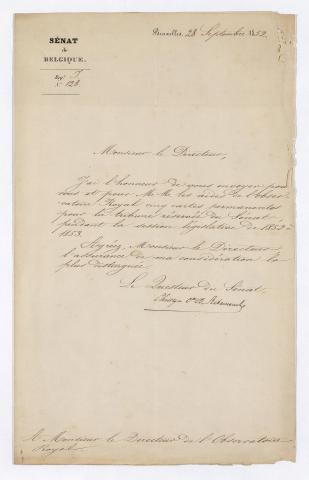 SÉNAT
de
BELGIQUE.
N° 128.
Bruxelles, 28 Septembre 1852.
Monsieur le Directeur,
J'ai l'honneur de vous envoyer pour
vous et pour M.M. les aides de l'obser-
vatoire Royal cinq cartes permanentes
pour la tribune réservée du Sénat,
pendant la session législative de 1852 à
1853.
Agréez, Monsieur le Directeur,
l'assurance de ma considération la
plus distinguée.
Le Questeur du Sénat.
A Monsieur le Directeur de l'Observatoire
Royal.